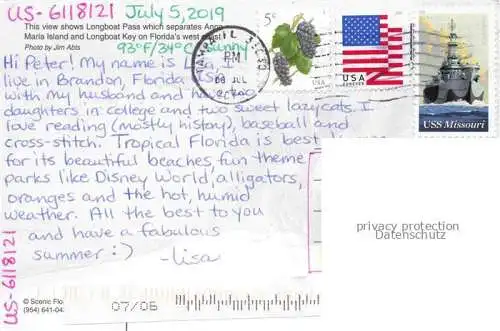 US-6118121 July 5, 2019
This view shows Longboat Pass which separates Anna
Maria Island and Longboat Key on Florida's west
Photo by Jim Abts
93°F/34°C Sunny
5¢
USA
USA
FOREVER
USS Missouri
PM
Hi Peter! My name is Lisa,
live in Brandon, Florida USA
with my husband and have two
daughters in college and two sweet lazy cats. I
love reading (mostly history), baseball and
cross-stitch. Tropical Florida is best
for its beautiful beaches, fun theme
parks like Disney World, alligators,
oranges and the hot, humid
weather. All the best to you
and have a fabulous
summer :) -Lisa
US-6118121
privacy protection
Datenschutz
© Scenic Flo
(954) 641-04
07/06